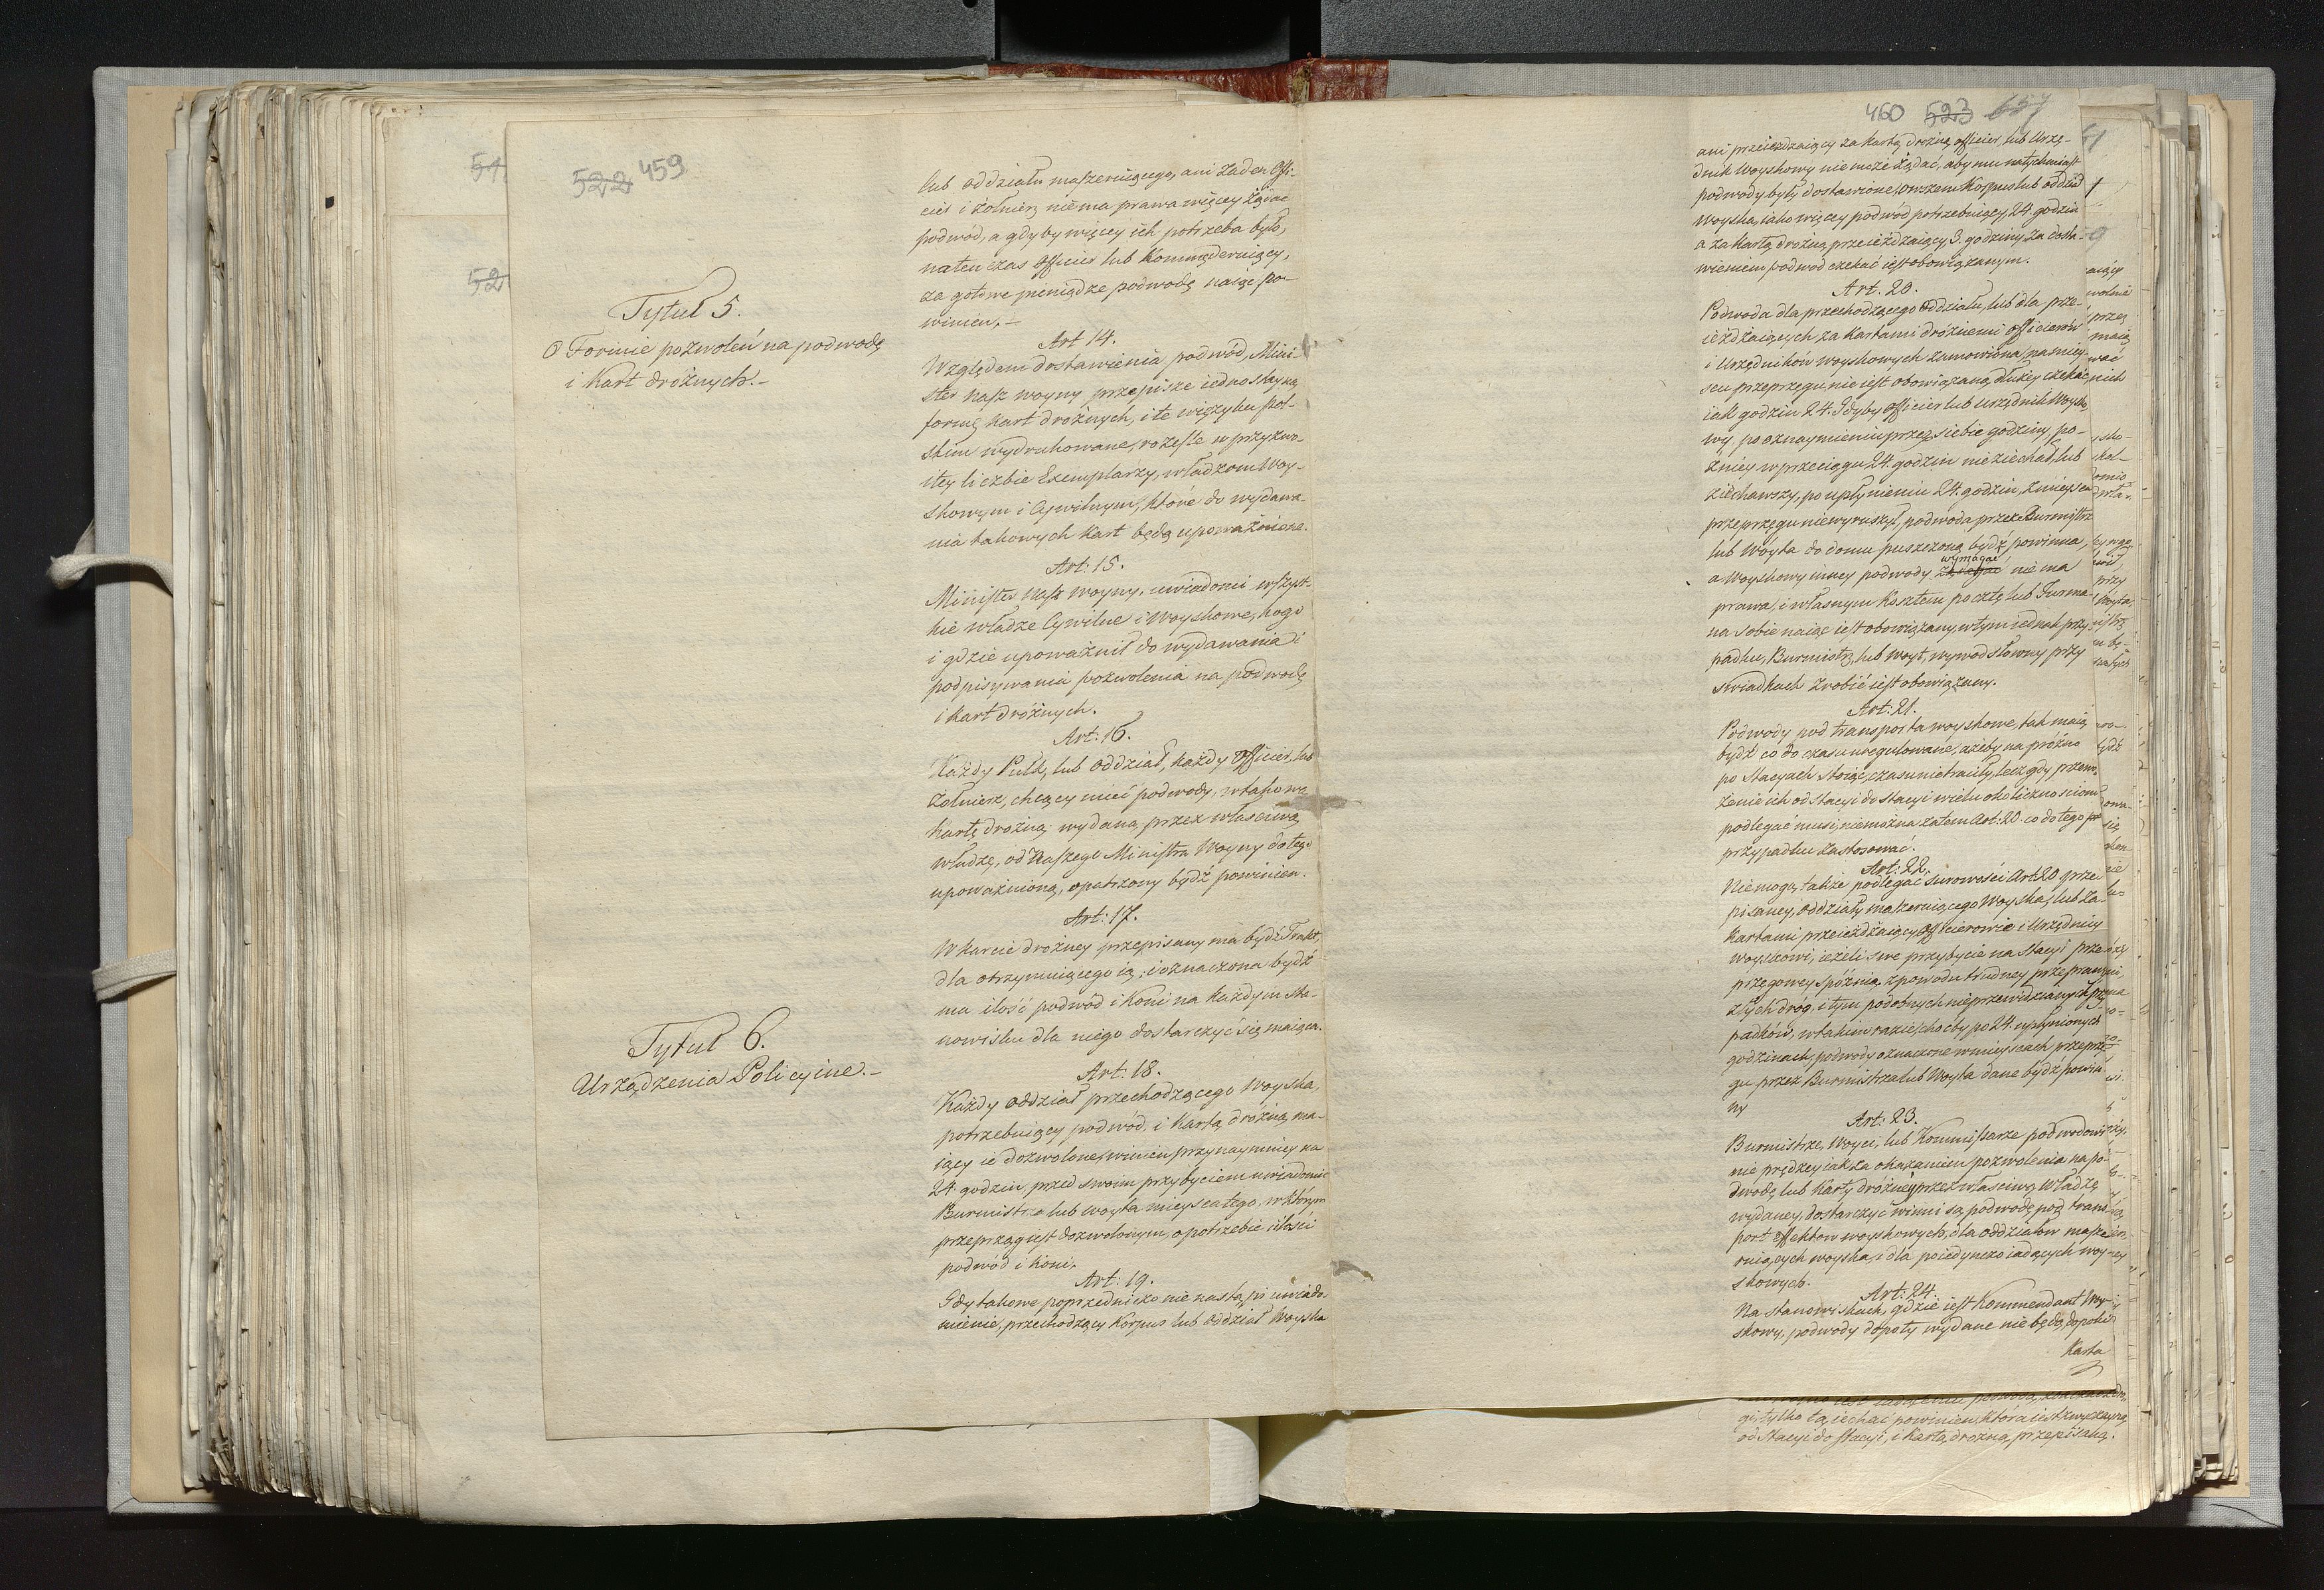 522 459
Tytuł 5.
O Formie pozwoleń na podwodę
i Kart dróżnych.-
Tytuł 6.
Urządzenia Policyine.-
lub oddziału maszeruiącego, ani żaden Offi-
cier i żołnierz niema prawa więcey żądać
podwód, a gdyby więcey ich potrzeba było,
natenczas officier lub Kommęderuiący,
za gotowe pieniądze podwodę naiąć po-
winien.-
Art 14.
Względem dostawienia podwód, Mini-
ster nasz woyny przepisze iednostayną
formę kart dróżnych, i te w ięzyku pol-
skim wydrukowane, rozeszle w przyzwo-
itey liczbie Exemplarzy, władzom Woy-
skowym i Cywilnym, które do wydawa-
nia takowych kart będą upoważnione.
Art: 15.
Minister nasz woyny, uwiadomi wszyst-
kie władze Cywilne i Woyskowe, kogo
i gdzie upoważnił do wydawania i
podpisywania pozwolenia na podwodę
i kart dróżnych.
Art: 16.
Każdy Pułk, lub oddział, każdy officier, lub
żołnierz, chcący mieć podwody, w takową
kartę drożną wydana przez własciwą
władzę, od Naszego Ministra Woyny do tego
upoważnioną, opatrzony bydź powinien.
Art: 17.
W karcie drożney przepisany ma bydź Trakt,
dla otrzymuiącego ią; i oznaczona bydź
ma ilość podwód i Koni na każdym sta-
nowisku dla niego dostarczyć się maiąca.
Art: 18.
Każdy oddział przechodzącego Woyska,
potrzebuiący podwód, i Kartą dróżną ma-
iący ie dozwolone, winien przynaymniey na
24 godzin, przed swoim przybyciem uwiadomić
Burmistrza lub woyta mieysca tego, w którym
przeprząg iest dozwolonym, o potrzebie ilości
podwód i koni.
Art: 19.
Gdy takowe poprzedniczo nie nastąpi uwiado-
mienie, przechodzący Korpus lub oddział Woyska
460 523 657
ani przeieżdzaiący za kartą drożną officier, lub Urzę-
dnik Woyskowy nie może żądać, aby mu natychmiast
podwody były dostawione, owszem Korpus lub oddział
Woyska, iako więcey podwód potrzebuiący, 24. godzin
a za Kartą drożną przeieżdzaiący, 3. godziny za dosta-
wieniem podwod czekać iest obowiązanym.
Art. 20.
Podwoda dla przechodzącego oddziału, lub dla prze-
ieżdżaiących za kartami dróżnemi officierów
i Urzędników woyskowych zamowiona, na miey-
scu przeprzęgu nie iest obowiązaną dłużey czekać
iak godzin 24. Gdyby officier lub urzędnik Woysko
wy, po oznaymieniu przez siebie godziny po-
źniey w przeciągu 24. godzin nie ziechał, lub
ziechawszy, po upłynieniu 24. godzin, z mieysca
przeprzęgu niewyruszył, podwoda przez Burmistrza
lub Woyta do domu puszczoną bydź powinna,
wymagać
a woyskowy inney podwody nie ma
prawa, i własnym kosztem pocztę lub Furma-
na sobie naiąć iest obowiązany, w tym iednak przy-
padku, Burmistrz, lub woyt, wywod słowny przy
swiadkach zrobić iest obowiązany.
Art: 21.
Podwody pod transporta woyskowe, tak maią
bydź co do czasu uregulowane, ażeby na próżno
po Stacyach stoiąc, czasu nie traciły, lecz gdy przewo-
żenie ich od stacyi do stacyi wielu okolicznosciom
podlegać musi, niemożna zatem Art: 20. co do tego
przypadku zastosować.
Art: 22.
Nie mogą także podlegać surowości Art 20 prze
pisaney, oddziały maszeruiącego Woyska, lub za
Kartami przeieżdżaiący officierowie i Urzędnicy
woyskowi, ieżeli swe przybycie na stacyi prze
przęgowey spóźnią, z powodu trudney przeprawy,
złych dróg, i tym podobnych nieprzewidzianych przy
padków, w takim razie choćby po 24. upłynionych
godzinach, podwody oznaczone w mieyscach przeprzę
gu przez Burmistrza lub Woyta dane bydź powin
ny
Art: 23.
Burmistrze, Woyci, lub Kommissarze podwodowi
nie prędzey iak za okazaniem pozwolenia na po-
dwodę lub Karty dróżney przez własciwą Władzę
wydaney, dostarczyć winni są podwodę pod trans-
port effektow woyskowych, dla oddziałow masze
ruiących woyska, i dla poiedynczo iadących woy
skowych.
Art: 24.
Na stanowiskach, gdzie iest Kommendant Woy-
skowy, podwody dopoty wydane nie będą, dopoki
Karta
gi, tylko tą iechać powinien, która iest zwyczayną
od Stacyi do stacyi, i Kartą drożną przepisaną.